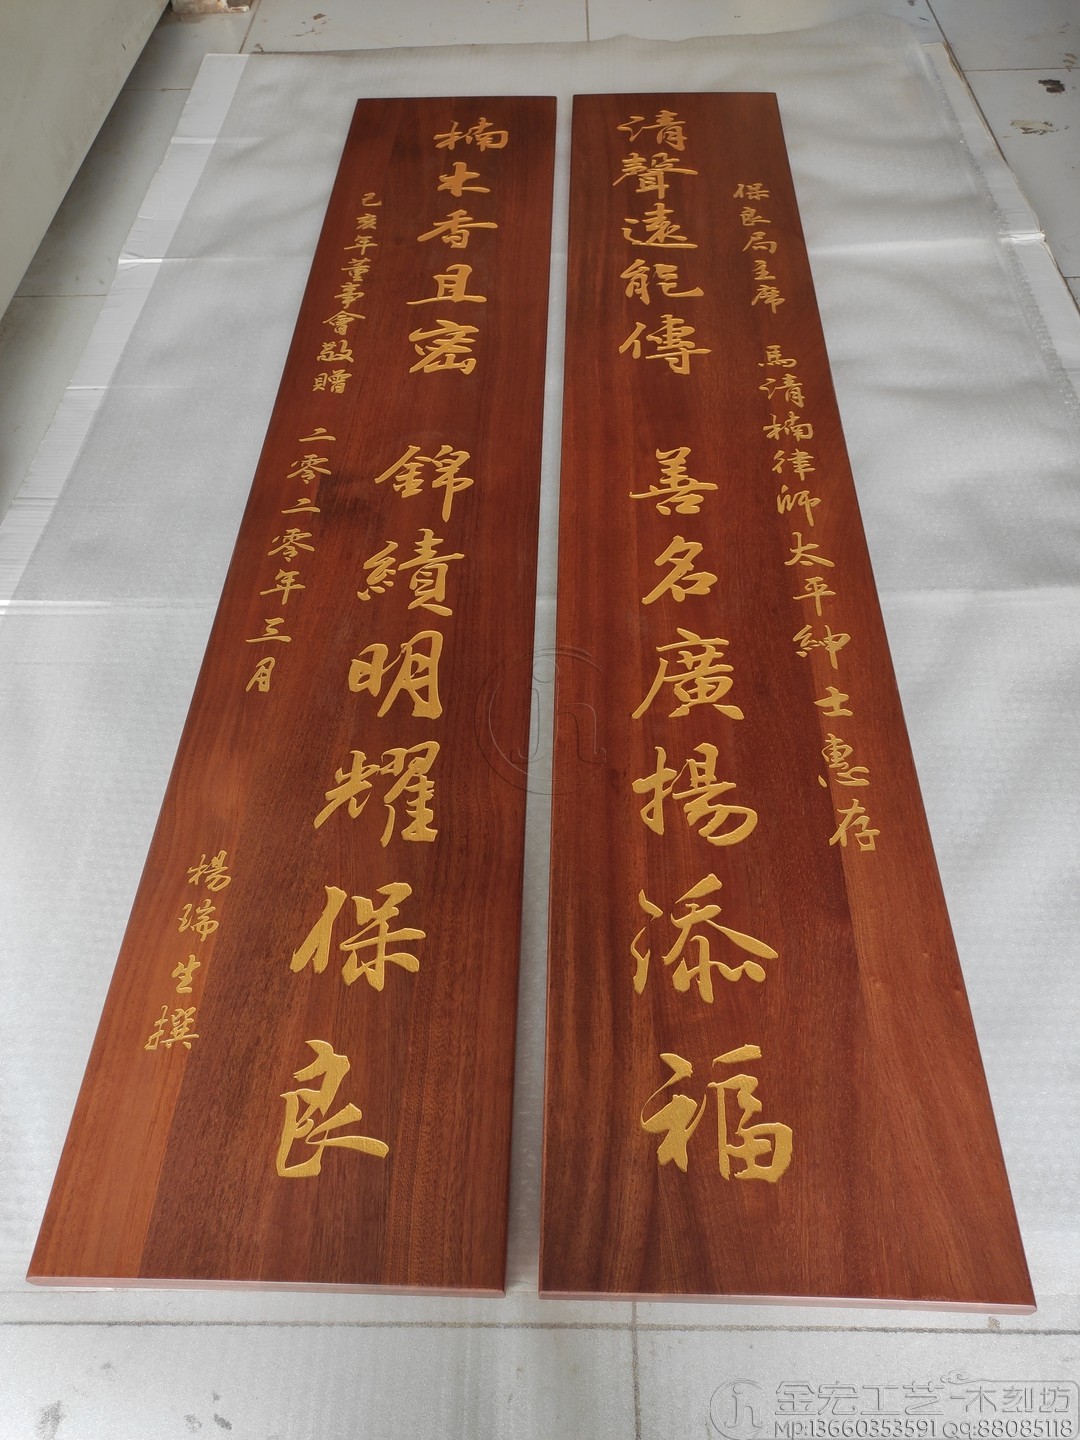 保良局主席 馬清楠律師太平紳士惠存
清聲遠能傳 善名廣揚添福
楠木香且密 錦績明耀保良
己亥年董事會敬贈 二零二零年三月
楊瑞生撰
金宏工艺-木刻坊
MP:13660353591 QQ:88085118